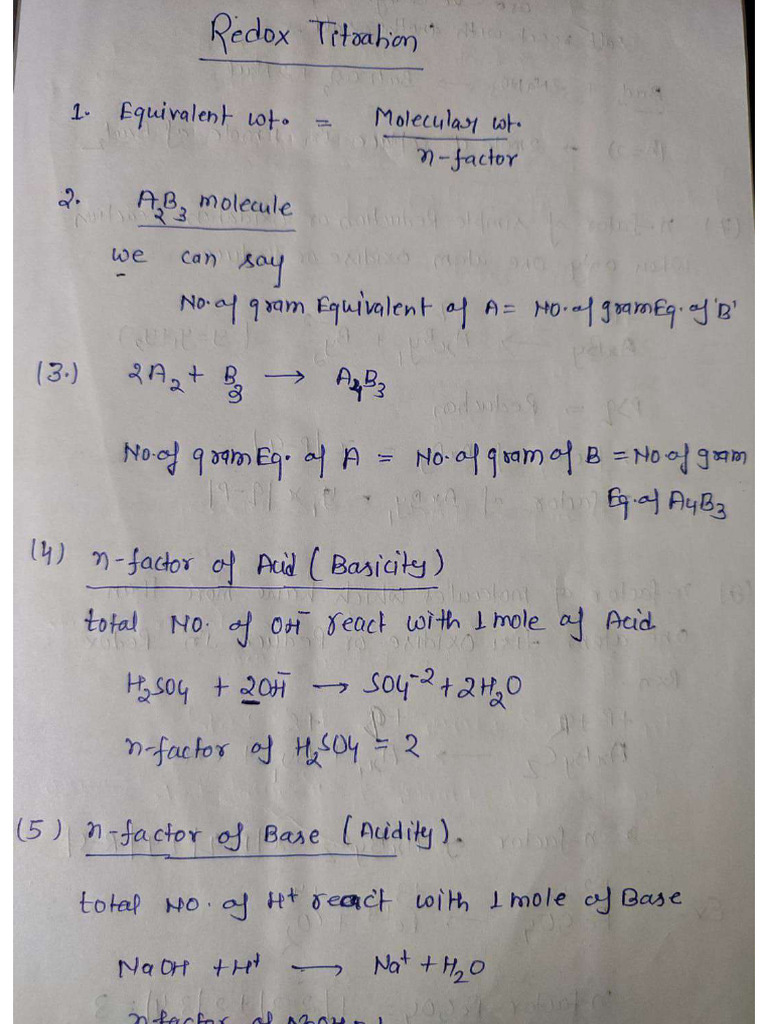 Redox Titration
1. Equivalent wt. = Molecular wt.
n-factor
2. A₂B₃ molecule
we can say
No. of gram Equivalent of A = No. of gram Eq. of 'B'
(3.) 2A₂ + B₃ ⟶ A₄B₃
No. of gram Eq. of A = No. of gram of B = No of gram
Eq. of A₄B₃
(4) n-factor of Acid (Basicity)
total No. of OH⁻ react with 1 mole of Acid
H₂SO₄ + 2OH⁻ ⟶ SO₄⁻² + 2H₂O
n-factor of H₂SO₄ = 2
(5) n-factor of Base (Acidity).
total No. of H⁺ react with 1 mole of Base
NaOH + H⁺ ⟶ Na⁺ + H₂O
n-factor of